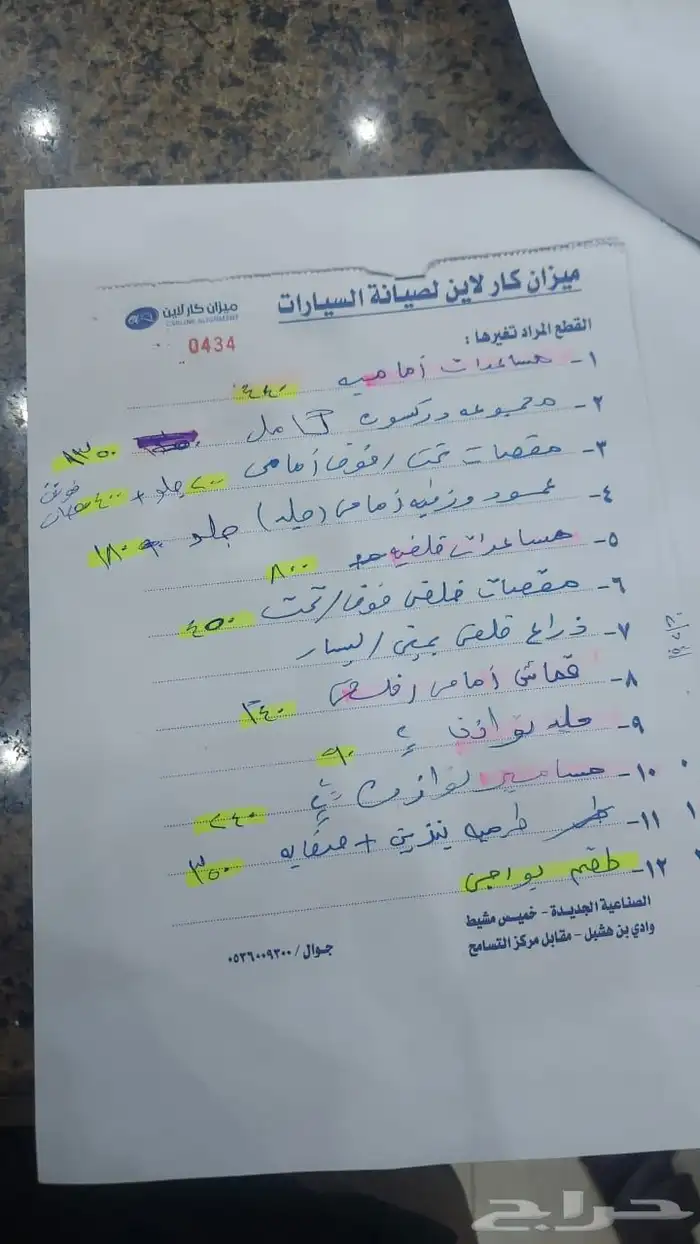 ميزان كار لاين لصيانة السيارات
ميزان كار لاين
CARLINE ALIGNMENT
0434
القطع المراد تغيرها :
١- مساعدات أماميه ٤٤٠
٢- مجموعه دركسون كامل ١٣٥٠
٣- مقصات تحت / فوق أمامي ٢٠٠ جلد + ٤٠٠ مقصات فوق
٤- عمود وزنيه أمامي (جلد) جلد ١٨٠
٥- مساعدات خلفيه ٨٠٠
٦- مقصات خلفي فوق / تحت ٤٥٠
٧- ذراع خلفي يمين / يسار
٨- قماش أمامي / خلفي ٢٤٠
٩- جلد توازن ٤ ٩٠
١٠- مسامير توازن ٤ ٢٤٠
١١- طرمبه بنزين + صفايه ٣٥٠
١٢- طقم بواجي
الصناعية الجديدة - خميس مشيط
وادي بن هشبل - مقابل مركز التسامح
جوال / ٠٥٣٦٠٠٩٣٠٠
حراج